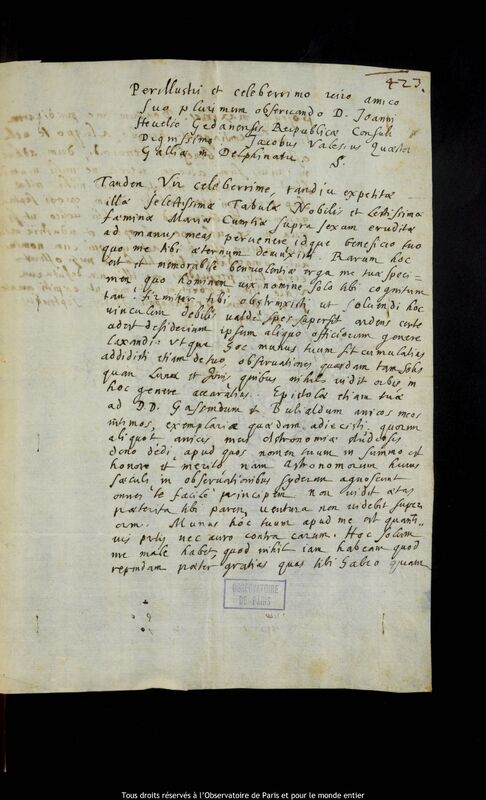 423.
Perillustri et celeberrimo viro amico
suo plurimum observando D. Joanni
Hevelio Gedanensis Reipublicæ Consuli
Dignissimo Jacobus Valesius Quæstor
Galliæ in Delphinatu S.
Tandem Vir celeberrime, tandiu expetitæ
illæ selectissimæ Tabulæ Nobilis et lectissimæ
fæminæ Mariæ Cunitiæ supra sexum eruditæ
ad manus meas pervenere idque beneficio tuo
quo me tibi æternum devinxisti. Rarum hoc
est et memorabile benevolentiæ erga me tuæ speci-
men quo hominem vix nomine solo tibi cognitum
tam firmiter tibi obstrinxisti ut solvendi hoc
vinculum debili valde spes supersit ardens certe
adest desiderium ipsum aliquo officiorum genere
laxandi: utque hoc munus tuum sit cumulatius
addidisti etiam de tuo observationes quasdam tam Solis
quam Lunæ et Jovis quibus nihil vidit orbis in
hoc genere accuratius. Epistolæ etiam tuæ
ad DD. Gassendum et Bulialdum amicos meos
intimos, exemplaria quædam adiecisti quorum
aliquot amicis meis Astronomiæ studiosis
dono dedi, apud quos nomen tuum in summo est
honore et merito nam Astronomorum huius
sæculi in observationibus syderum agnoscunt
omnes te facile principem non vidit ætas
præterita tibi parem, ventura non videbit superi-
orem. Munus hoc tuum apud me est quanti-
vis pretij nec auro contra carum. Hoc solum
me male habet quod nihil iam habeam quod
rependam præter gratias quas tibi habeo quam
OBSERVATOIRE
DE PARIS
Tous droits réservés à l'Observatoire de Paris et pour le monde entier